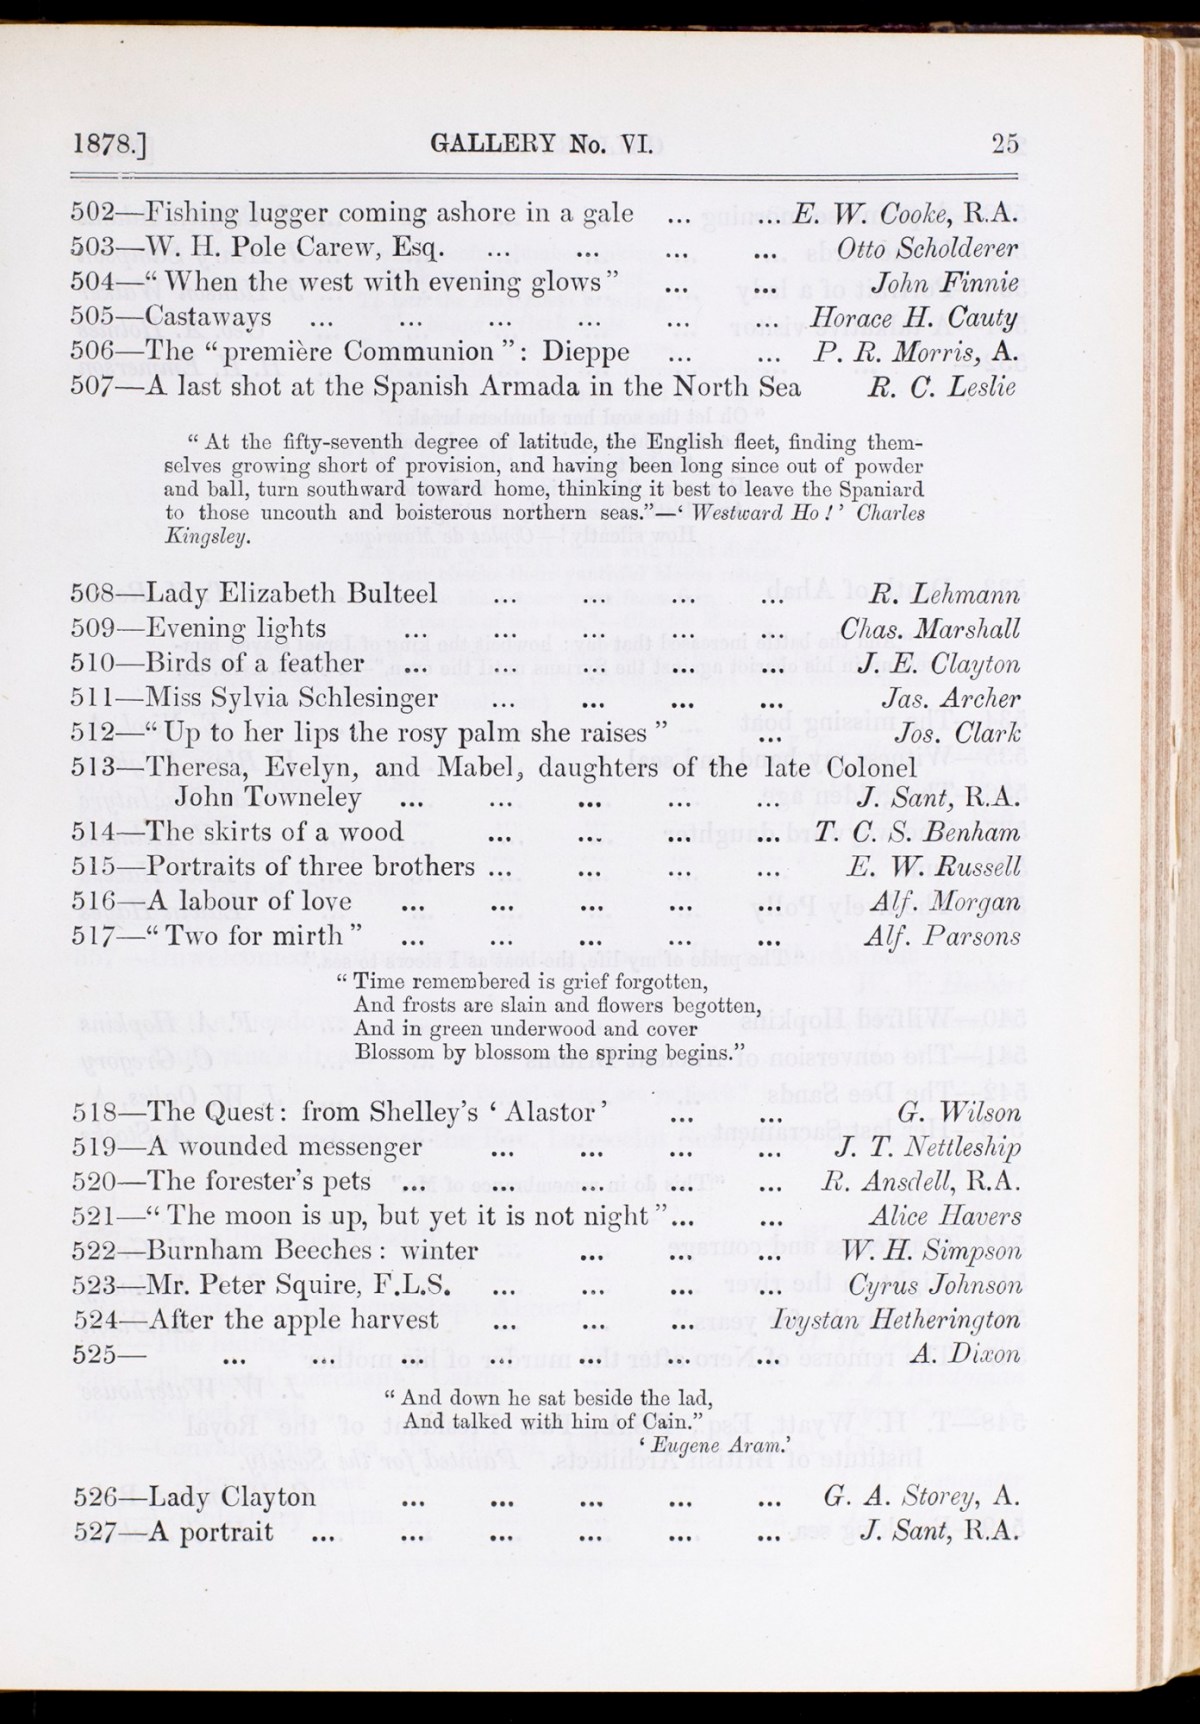 1878.] GALLERY No. VI. 25
502—Fishing lugger coming ashore in a gale ... ... E. W. Cooke, R.A.
503—W. H. Pole Carew, Esq. ... ... ... ... Otto Scholderer
504—“When the west with evening glows” ... ... John Finnie
505—Castaways ... ... ... ... ... ... Horace H. Cauty
506—The “première Communion”: Dieppe ... ... P. R. Morris, A.
507—A last shot at the Spanish Armada in the North Sea R. C. Leslie
“At the fifty-seventh degree of latitude, the English fleet, finding them-
selves growing short of provision, and having been long since out of powder
and ball, turn southward toward home, thinking it best to leave the Spaniard
to those uncouth and boisterous northern seas.”—‘Westward Ho!’ Charles
Kingsley.
508—Lady Elizabeth Bulteel ... ... ... ... R. Lehmann
509—Evening lights ... ... ... ... ... Chas. Marshall
510—Birds of a feather ... ... ... ... ... J. E. Clayton
511—Miss Sylvia Schlesinger ... ... ... ... Jas. Archer
512—“Up to her lips the rosy palm she raises” ... Jos. Clark
513—Theresa, Evelyn, and Mabel, daughters of the late Colonel
John Towneley ... ... ... ... ... J. Sant, R.A.
514—The skirts of a wood ... ... ... ... T. C. S. Benham
515—Portraits of three brothers ... ... ... ... E. W. Russell
516—A labour of love ... ... ... ... ... Alf. Morgan
517—“Two for mirth” ... ... ... ... ... Alf. Parsons
“Time remembered is grief forgotten,
And frosts are slain and flowers begotten,
And in green underwood and cover
Blossom by blossom the spring begins.”
518—The Quest: from Shelley’s ‘Alastor’ ... ... G. Wilson
519—A wounded messenger ... ... ... ... J. T. Nettleship
520—The forester’s pets ... ... ... ... ... R. Ansdell, R.A.
521—“The moon is up, but yet it is not night”... ... Alice Havers
522—Burnham Beeches: winter ... ... ... W. H. Simpson
523—Mr. Peter Squire, F.L.S. ... ... ... ... Cyrus Johnson
524—After the apple harvest ... ... ... Ivystan Hetherington
525— ... ... ... ... ... ... ... A. Dixon
“And down he sat beside the lad,
And talked with him of Cain.”
‘Eugene Aram.’
526—Lady Clayton ... ... ... ... ... G. A. Storey, A.
527—A portrait ... ... ... ... ... ... J. Sant, R.A.